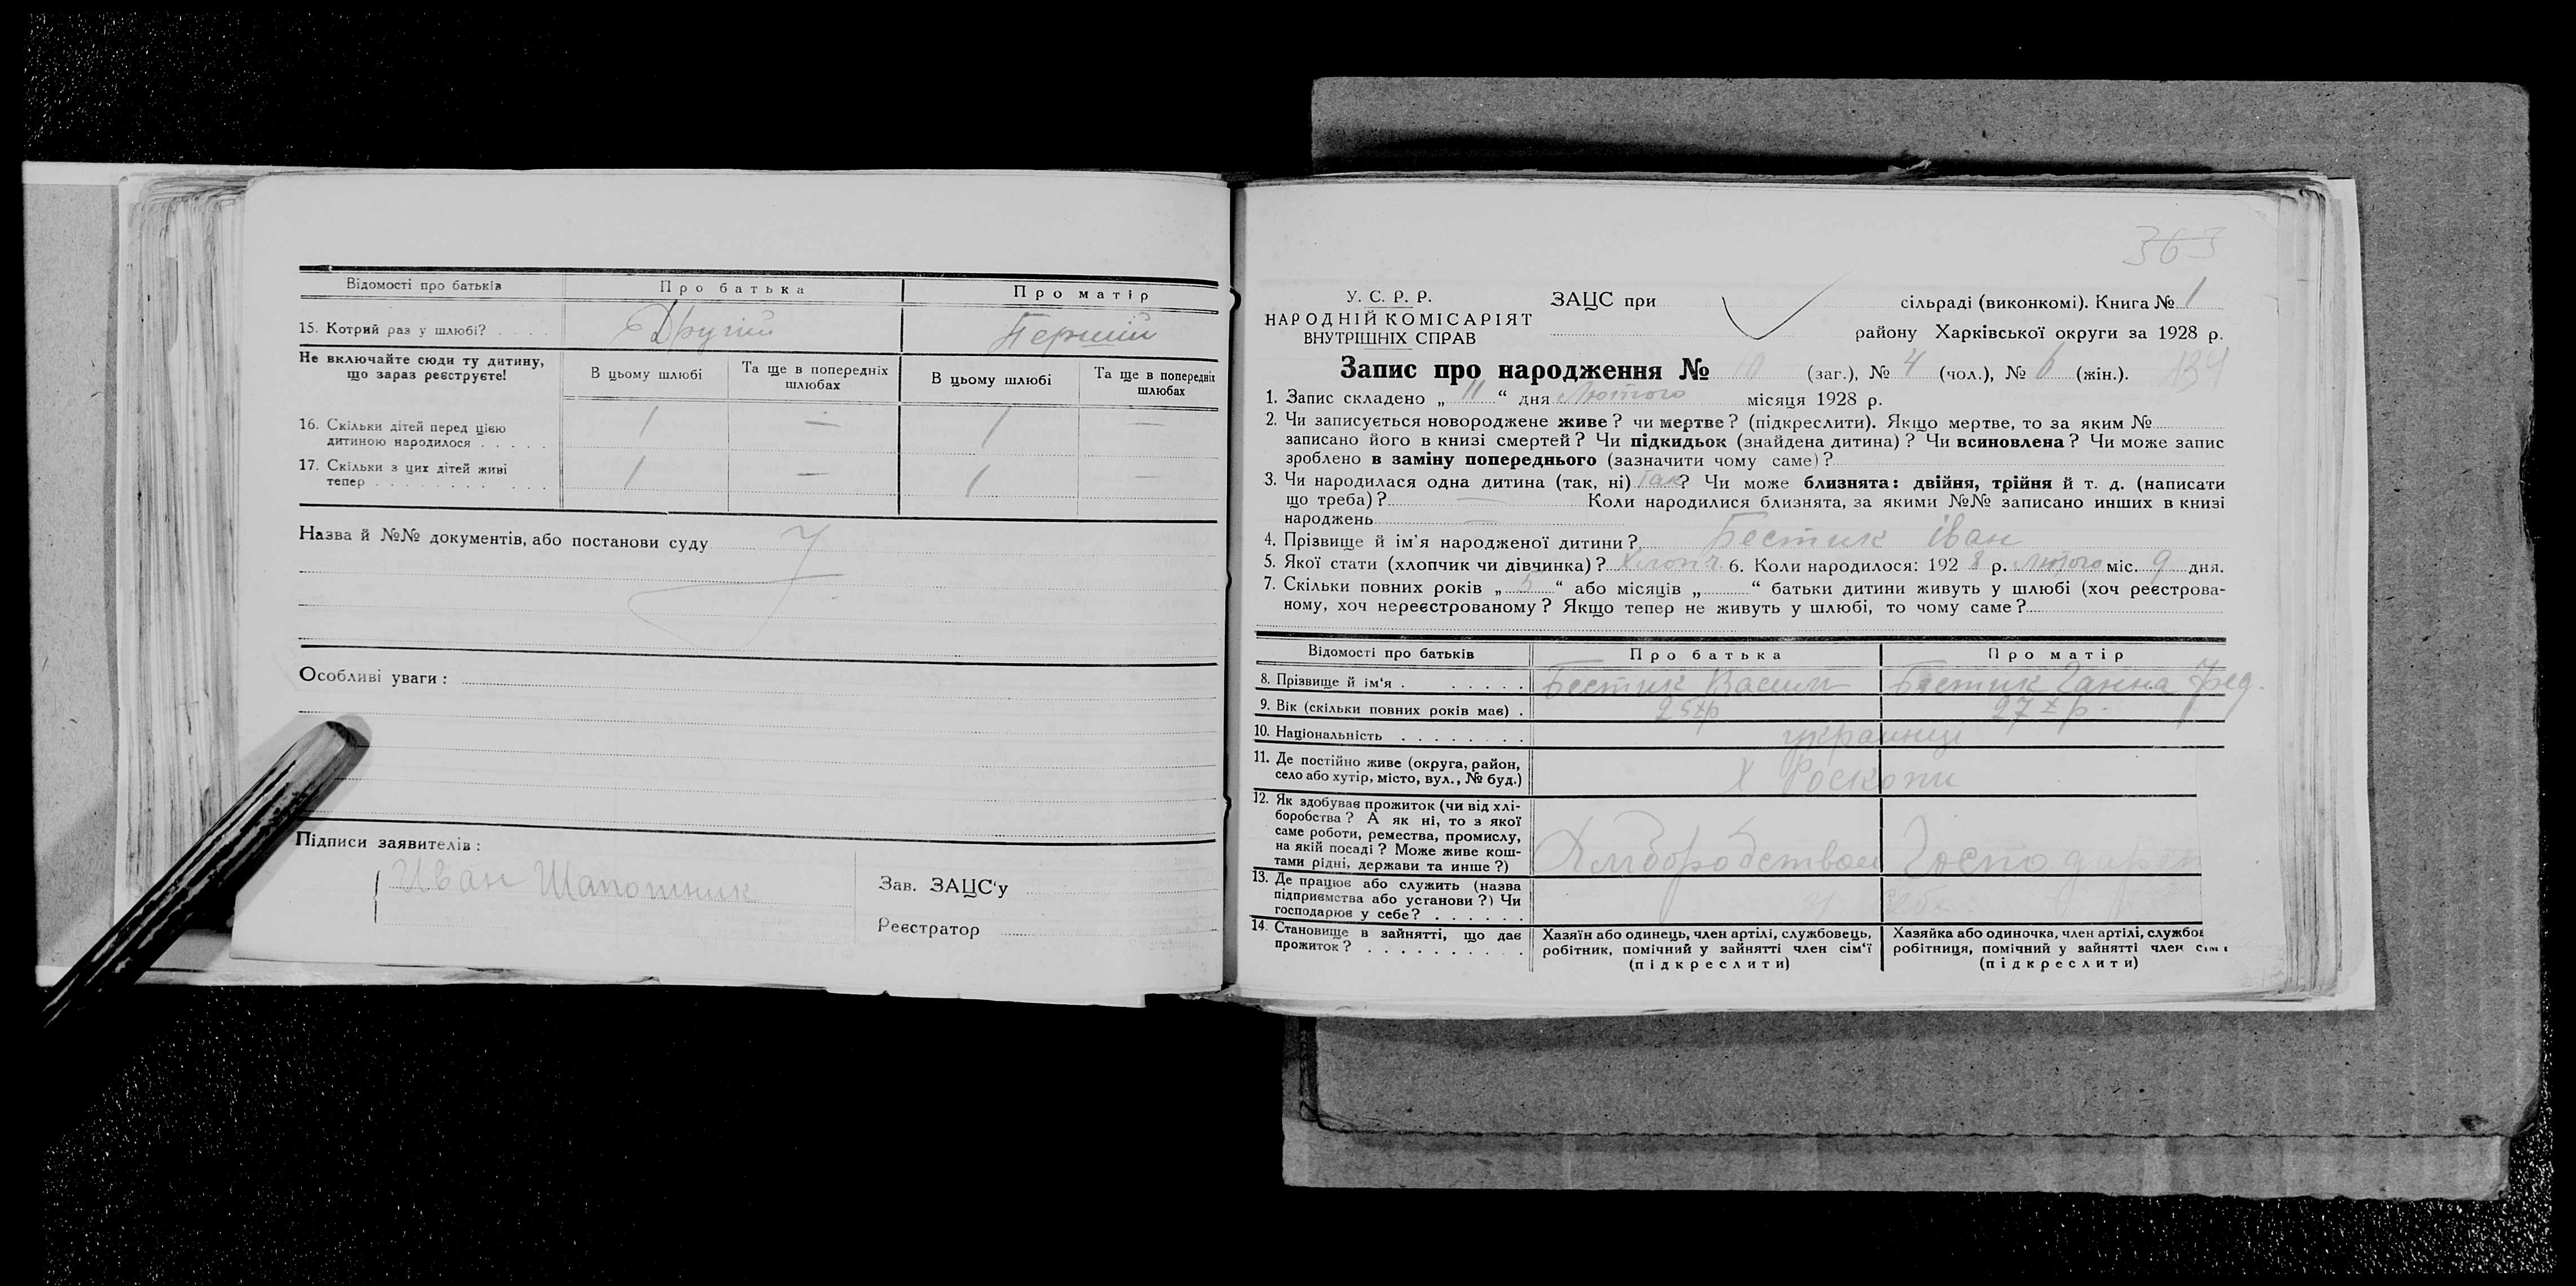 Відомості про батьків Про батька Про матір
15. Котрий раз у шлюбі? . . . . Другий Перший
Не включайте сюди ту дитину,
що зараз реєструєте!
В цьому шлюбі Та ще в попередніх шлюбах В цьому шлюбі Та ще в попередніх шлюбах
16. Скільки дітей перед цією
дитиною народилося . . . . . 1 — 1 —
17. Скільки з цих дітей живі
тепер . . . . . . . . . . . 1 — 1 —
Назва й №№ документів, або постанови суду
Особливі уваги :
Підписи заявителів :
Иван Шапошник
Зав. ЗАЦС'у
Реєстратор
363
У. С. Р. Р.
НАРОДНІЙ КОМІСАРІЯТ
ВНУТРІШНІХ СПРАВ
ЗАЦС при сільраді (виконкомі). Книга № 1
району Харківської округи за 1928 р.
Запис про народження № 10 (заг.), № 4 (чол.), № 6 (жін.). 134
1. Запис складено „ 11 “ дня Лютого місяця 1928 р.
2. Чи записується новороджене живе? чи мертве? (підкреслити). Якщо мертве, то за яким №
записано його в книзі смертей? Чи підкидьок (знайдена дитина)? Чи всиновлена? Чи може запис
зроблено в заміну попереднього (зазначити чому саме)?
3. Чи народилася одна дитина (так, ні) так? Чи може близнята: двійня, трійня й т. д. (написати
що треба)? — Коли народилися близнята, за якими №№ записано инших в книзі
народжень —
4. Прізвище й ім'я народженої дитини? Бестик Іван
5. Якої стати (хлопчик чи дівчинка)? Хлопч 6. Коли народилося: 192 8 р. лютого міс. 9 дня.
7. Скільки повних років „ 5 “ або місяців „ “ батьки дитини живуть у шлюбі (хоч реєстрова-
ному, хоч нереєстрованому? Якщо тепер не живуть у шлюбі, то чому саме?
Відомості про батьків Про батька Про матір
8. Прізвище й ім'я . . . . . . Бестик Васили Бестик Ганна Фед.
9. Вік (скільки повних років має) . 25 27
10. Національність . . . . . . . . украинці
11. Де постійно живе (округа, район,
село або хутір, місто, вул., № буд.) Х Роскопи
12. Як здобуває прожиток (чи від хлі-
боробства? А як ні, то з якої
саме роботи, ремества, промислу,
на якій посаді? Може живе кош-
тами рідні, держави та инше?) Хлиборобством
13. Де працює або служить (назва
підприємства або установи?) Чи
господарює у себе? . . . . . .
14. Становище в зайнятті, що дає
прожиток? . . . . . . . . . .
Хазяїн або одинець, член артілі, службовець,
робітник, помічний у зайнятті член сім'ї
(підкреслити)
Хазяйка або одиночка, член артілі, службов
робітниця, помічний у зайнятті член сім ї
(підкреслити)